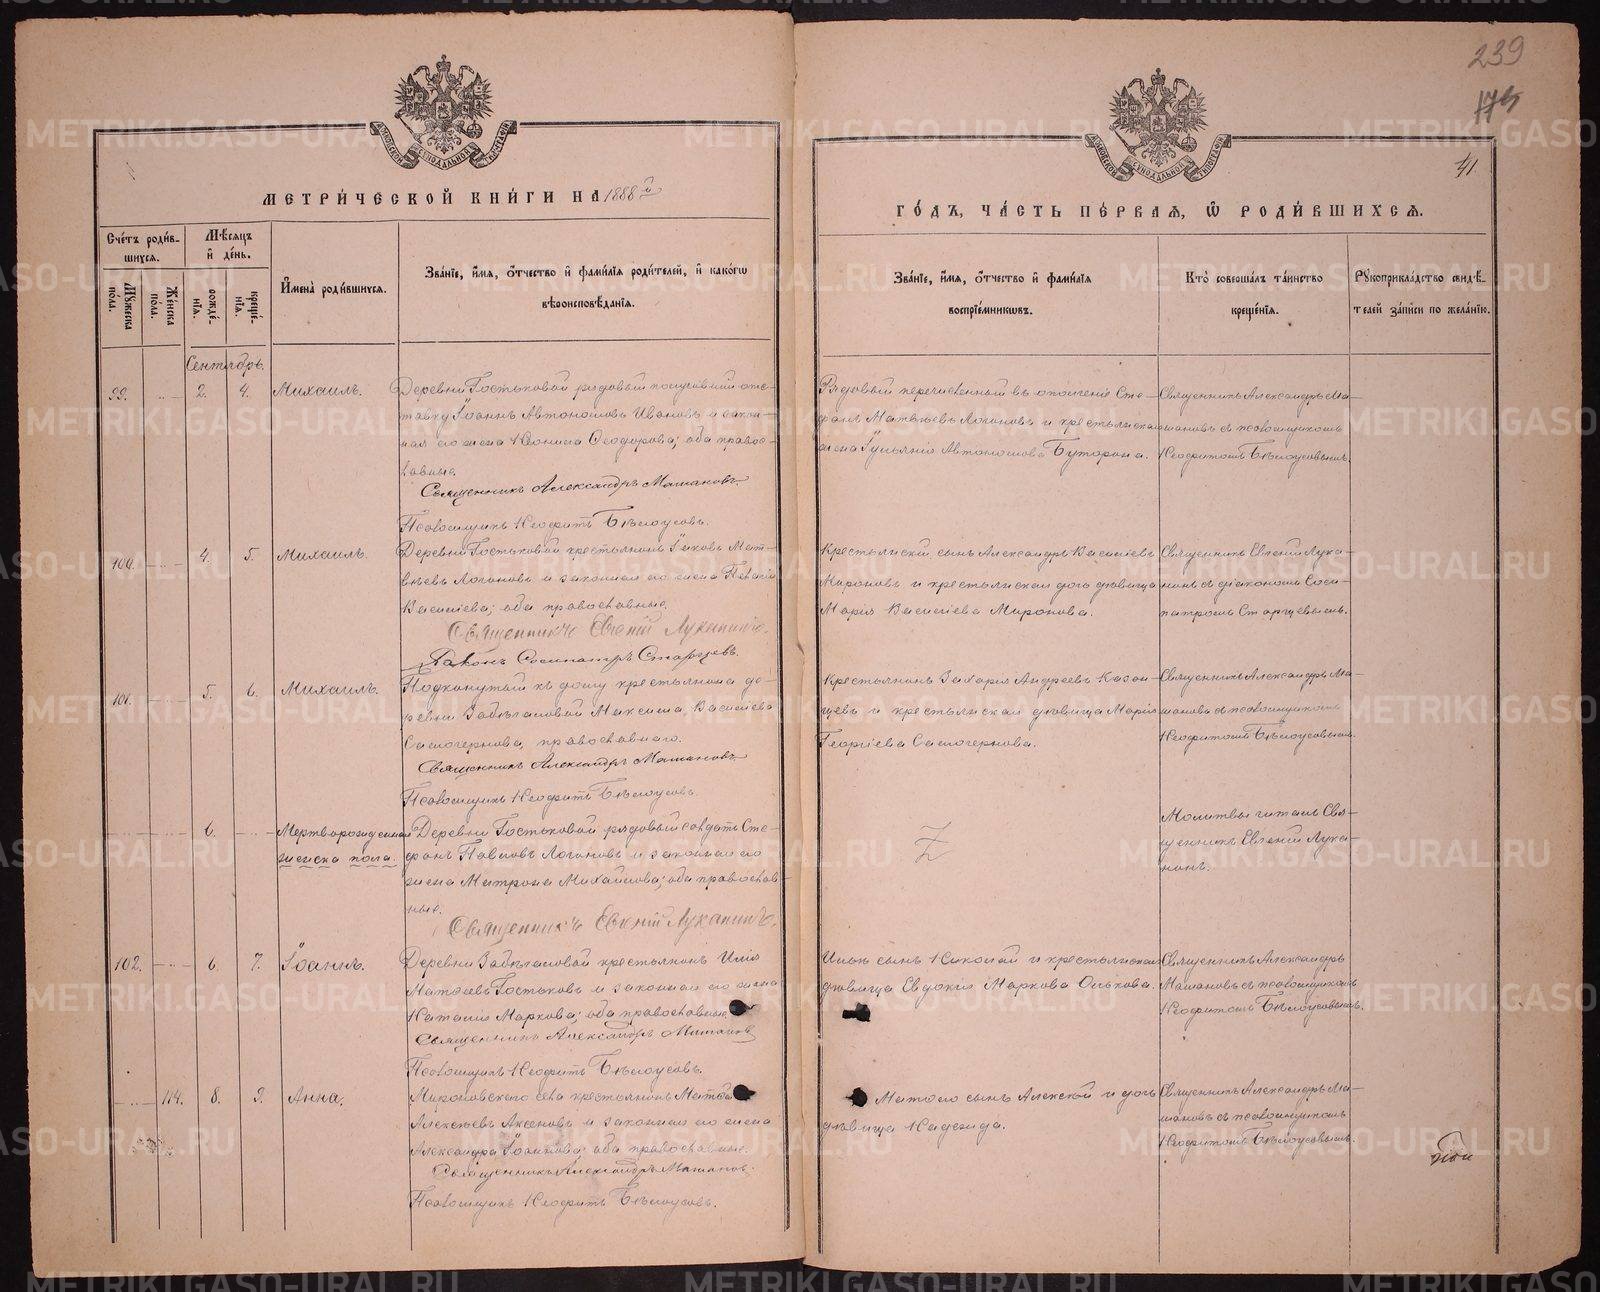 239
175
41
МОСКОВСКОЙ СУНОДАЛЬНОЙ ТИПОГРАФІИ
МОСКОВСКОЙ СУНОДАЛЬНОЙ ТИПОГРАФІИ
МЕТРИ́ЧЕСКОЙ КНИ́ГИ НА 1888 й
ГО́ДЪ, ЧА́СТЬ ПЕ́РВАЯ, Ѿ РОДИ́ВШИХСЯ.
Сче́тъ роди́в-
шихся.
Му́жеска по́ла.
Же́нска по́ла.
Мѣ́сяцъ
и де́нь.
рожде́-
нія.
креще́-
нія.
Имена́ роди́вшихся.
Зва́ніе, и́мя, о́тчество и фами́лія роди́телей, и како́гω
вѣроисповѣ́данія.
Зва́ніе, и́мя, о́тчество и фами́лія
воспріе́мникωвъ.
Кто̀ соверша́лъ та́инство
креще́нія.
Рукоприкла́дство свидѣ́-
телей за́писи по жела́нію.
Сентябрь.
99. 2. 4. Михаилъ.
Деревни Гостьковой рядовый получивший отс-
тавку Іоаннъ Автономовъ Ивановъ и закон-
ная его жена Ѳеодорова; оба правос-
лавные.
Священникъ Александръ Машановъ.
Псаломщикъ Неофитъ Бѣлоусовъ.
Рядовый перечисленный въ Сте-
фанъ Матвѣевъ Логиновъ и крестьянская
жена Автономова Буторина.
Священникъ Александръ Ма-
шановъ съ псаломщикомъ
Неофитомъ Бѣлоусовымъ.
100. 4. 5. Михаилъ.
Деревни Гостьковой крестьянинъ Іаковъ Мат-
вѣевъ Логиновъ и законная его жена Пелагія
Василіева; оба православные.
Священникъ Евгеній Луканинъ.
Діаконъ Сосипатръ Старцевъ.
Крестьянскій сынъ Александръ Василіевъ
Мироновъ и крестьянская дочь дѣвица
Марія Василіева Миронова.
Священникъ Евгеній Лука-
нинъ съ діакономъ Соси-
патромъ Старцевымъ.
101. 5. 6. Михаилъ.
Подкинутый къ дому крестьянина де-
ревни Забѣгаловой Максима Василіева
Самочернова, православнаго.
Священникъ Александръ Машановъ.
Псаломщикъ Неофитъ Бѣлоусовъ.
Крестьянинъ Захарія Андреевъ Казан-
цевъ и крестьянская дѣвица Марія
Георгіева Самочернова.
Священникъ Александръ Ма-
шановъ съ псаломщикомъ
Неофитомъ Бѣлоусовымъ.
6. Мертворожденная
женска пола.
Деревни Гостьковой рядовый солдатъ Сте-
фанъ Павловъ Логиновъ и законная его
жена Матрона Михайлова; оба православ-
ные.
Священникъ Евгеній Луканинъ.
Z
Молитвы читалъ Свя-
щенникъ Евгеній Лука-
нинъ.
102. 6. 7. Іоаннъ.
Деревни Забѣгаловой крестьянинъ Илія
Матѳеевъ Гостьковъ и законная его жена
Наталія Маркова; оба православные.
Священникъ Александръ Машановъ
Псаломщикъ Неофитъ Бѣлоусовъ.
Иліи сынъ Николай и крестьянская
дѣвица Евдокія Маркова Олькова.
Священникъ Александръ
Машановъ съ псаломщикомъ
Неофитомъ Бѣлоусовымъ.
114. 8. 9. Анна.
Мироновскаго села крестьянинъ Матѳей
Алексѣевъ Аксеновъ и законная его жена
Александра Іоаннова; оба православные.
Священникъ Александръ Машановъ.
Псаломщикъ Неофитъ Бѣлоусовъ.
Матѳея сынъ Алексѣй и дочь
дѣвица Надежда.
Священникъ Александръ Ма-
шановъ съ псаломщикомъ
Неофитомъ Бѣлоусовымъ.
METRIKI.GASO-URAL.RU